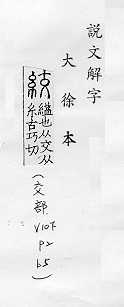 説文解字
大徐本
絞 縊也从交从
糸古巧切
(交部
V10下
P2
b5)